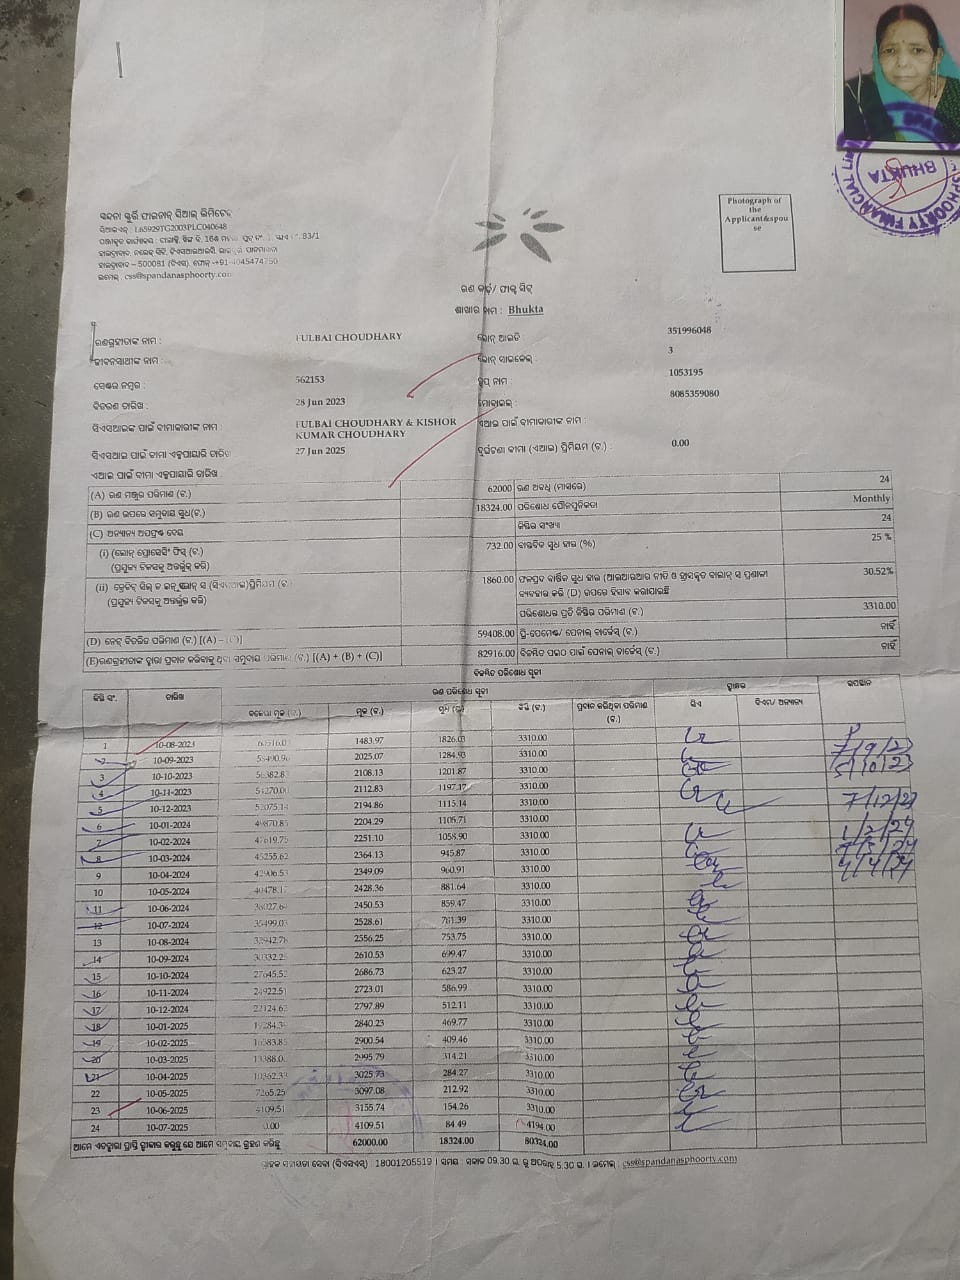 ସ୍ପନ୍ଦନା ସ୍ଫୁର୍ତି ଫାଇନାନ୍ସିଆଲ୍ ଲିମିଟେଡ୍
ସିଆଇଏନ୍ : L65929TG2003PLC040648
ହାଇଦ୍ରାବାଦ - 500081
ଇମେଲ୍ : css@spandanasphoorty.com
Photograph of the Applicant&spouse
BHUKTA
ଋଣ କାର୍ଡ/ ଫାକ୍ଟ ସିଟ୍
ଶାଖାର ନାମ : Bhukta
ଋଣଗ୍ରହୀତାଙ୍କ ନାମ : FULBAI CHOUDHARY ଲୋନ୍ ଆଇଡି 351996048
ଜୀବନସାଥୀଙ୍କ ନାମ : ଲୋନ୍ ସାଇକେଲ୍ : 3
ସେଣ୍ଟର ନମ୍ବର : 562153 ଗ୍ରୁପ୍ ନାମ : 1053195
ବିତରଣ ତାରିଖ : 28 Jun 2023 ମୋବାଇଲ୍ : 8085359080
ସିଏସଆଇଙ୍କ ପାଇଁ ବୀମାକାରୀଙ୍କ ନାମ : FULBAI CHOUDHARY & KISHOR KUMAR CHOUDHARY ଏଆଇ ପାଇଁ ବୀମାକାରୀଙ୍କ ନାମ :
ସିଏସଆଇ ପାଇଁ ବୀମା ଏକ୍ସପାୟାରି ତାରିଖ 27 Jun 2025 ଦୁର୍ଘଟଣା ବୀମା (ଏଆଇ) ପ୍ରିମିୟମ (ଟ.) : 0.00
ଏଆଇ ପାଇଁ ବୀମା ଏକ୍ସପାୟାରି ତାରିଖ :
(A) ଋଣ ମଞ୍ଜୁର ପରିମାଣ (ଟ.) 62000 ଋଣ ଅବଧି (ମାସରେ) 24
(B) ଋଣ ଉପରେ ସମୁଦାୟ ସୁଧ(ଟ.) 18324.00 ପରିଶୋଧ ପୌନପୁନିକତା Monthly
(C) ଅନ୍ୟାନ୍ୟ ଅପଫ୍ରଣ୍ଟ ଦେୟ କିସ୍ତିର ସଂଖ୍ୟା 24
(i) (ଲୋନ୍ ପ୍ରୋସେସିଂ ଫିସ୍ (ଟ.) 732.00 ବାସ୍ତବିକ ସୁଧ ହାର (%) 25 %
(ପ୍ରଯୁଜ୍ୟ ଟିକସକୁ ଅନ୍ତର୍ଭୁକ୍ତ କରି)
(ii) 1860.00 30.52%
(ପ୍ରଯୁଜ୍ୟ ଟିକସକୁ ଅନ୍ତର୍ଭୁକ୍ତ କରି)
ପରିଶୋଧର ପ୍ରତି କିସ୍ତିର ପରିମାଣ (ଟ.) 3310.00
(D) ନେଟ୍ ବିତରିତ ପରିମାଣ (ଟ.) [(A) – (C)] 59408.00 ପ୍ରି-ପେମେଣ୍ଟ/ ପେନାଲ୍ ଚାର୍ଜେସ୍ (ଟ.) ନାହିଁ
(E)ଋଣଗ୍ରହୀତାଙ୍କ ଦ୍ୱାରା ପ୍ରଦାନ କରିବାକୁ ଥିବା ସମୁଦାୟ ପରିମାଣ (ଟ.) [(A) + (B) + (C)] 82916.00 ବିଳମ୍ବିତ ପଇଠ ପାଇଁ ପେନାଲ୍ ଚାର୍ଜେସ୍ (ଟ.) ନାହିଁ
ବିଳମ୍ବିତ ପରିଶୋଧ ସୂଚୀ
କିସ୍ତି ସଂ. ତାରିଖ ଋଣ ପରିଶୋଧ ସୂଚୀ ସ୍ୱାକ୍ଷର ଉପସ୍ଥାନ
ବକେୟା ମୂଳ (ଟ.) ମୂଳ (ଟ.) ସୁଧ (ଟ.) କିସ୍ତି (ଟ.) ପ୍ରଦାନ କରିଥିବା ପରିମାଣ (ଟ.) ସିଏ ବିଏମ/ ଅନ୍ୟାନ୍ୟ
1 10-08-2023 1483.97 1826.03 3310.00 P
2 10-09-2023 2025.07 1284.93 3310.00 7/9/23
3 10-10-2023 2108.13 1201.87 3310.00 5/10/23
4 10-11-2023 2112.83 1197.17 3310.00
5 10-12-2023 52075.14 2194.86 1115.14 3310.00 7/12/23
6 10-01-2024 49870.85 2204.29 1105.71 3310.00
7 10-02-2024 47619.75 2251.10 1058.90 3310.00 1/2/24
8 10-03-2024 45255.62 2364.13 945.87 3310.00 7/3/24
9 10-04-2024 42906.53 2349.09 960.91 3310.00 4/4/24
10 10-05-2024 40478.17 2428.36 881.64 3310.00
11 10-06-2024 38027.64 2450.53 859.47 3310.00
12 10-07-2024 35499.03 2528.61 781.39 3310.00
13 10-08-2024 32942.78 2556.25 753.75 3310.00
14 10-09-2024 30332.25 2610.53 699.47 3310.00
15 10-10-2024 27645.52 2686.73 623.27 3310.00
16 10-11-2024 24922.51 2723.01 586.99 3310.00
17 10-12-2024 22124.62 2797.89 512.11 3310.00
18 10-01-2025 19284.39 2840.23 469.77 3310.00
19 10-02-2025 16383.85 2900.54 409.46 3310.00
20 10-03-2025 2995.79 314.21 3310.00
21 10-04-2025 10362.33 3025.73 284.27 3310.00
22 10-05-2025 7265.25 3097.08 212.92 3310.00
23 10-06-2025 4109.51 3155.74 154.26 3310.00
24 10-07-2025 0.00 4109.51 84.49 4194.00
ଆମେ ଏତଦ୍ୱାରା ପ୍ରାପ୍ତି ସ୍ୱୀକାର କରୁଛୁ ଯେ ଆମେ ସମୁଦାୟ ଗ୍ରହଣ କରିଛୁ 62000.00 18324.00 80324.00
ଗ୍ରାହକ ସହାୟତା ସେବା (ସିଏସଏସ୍) : 18001205519 । ସମୟ : ସକାଳ 09.30 ଘ. ରୁ ଅପରାହ୍ନ 5.30 ଘ. । ଇମେଲ୍ : css@spandanasphoorty.com